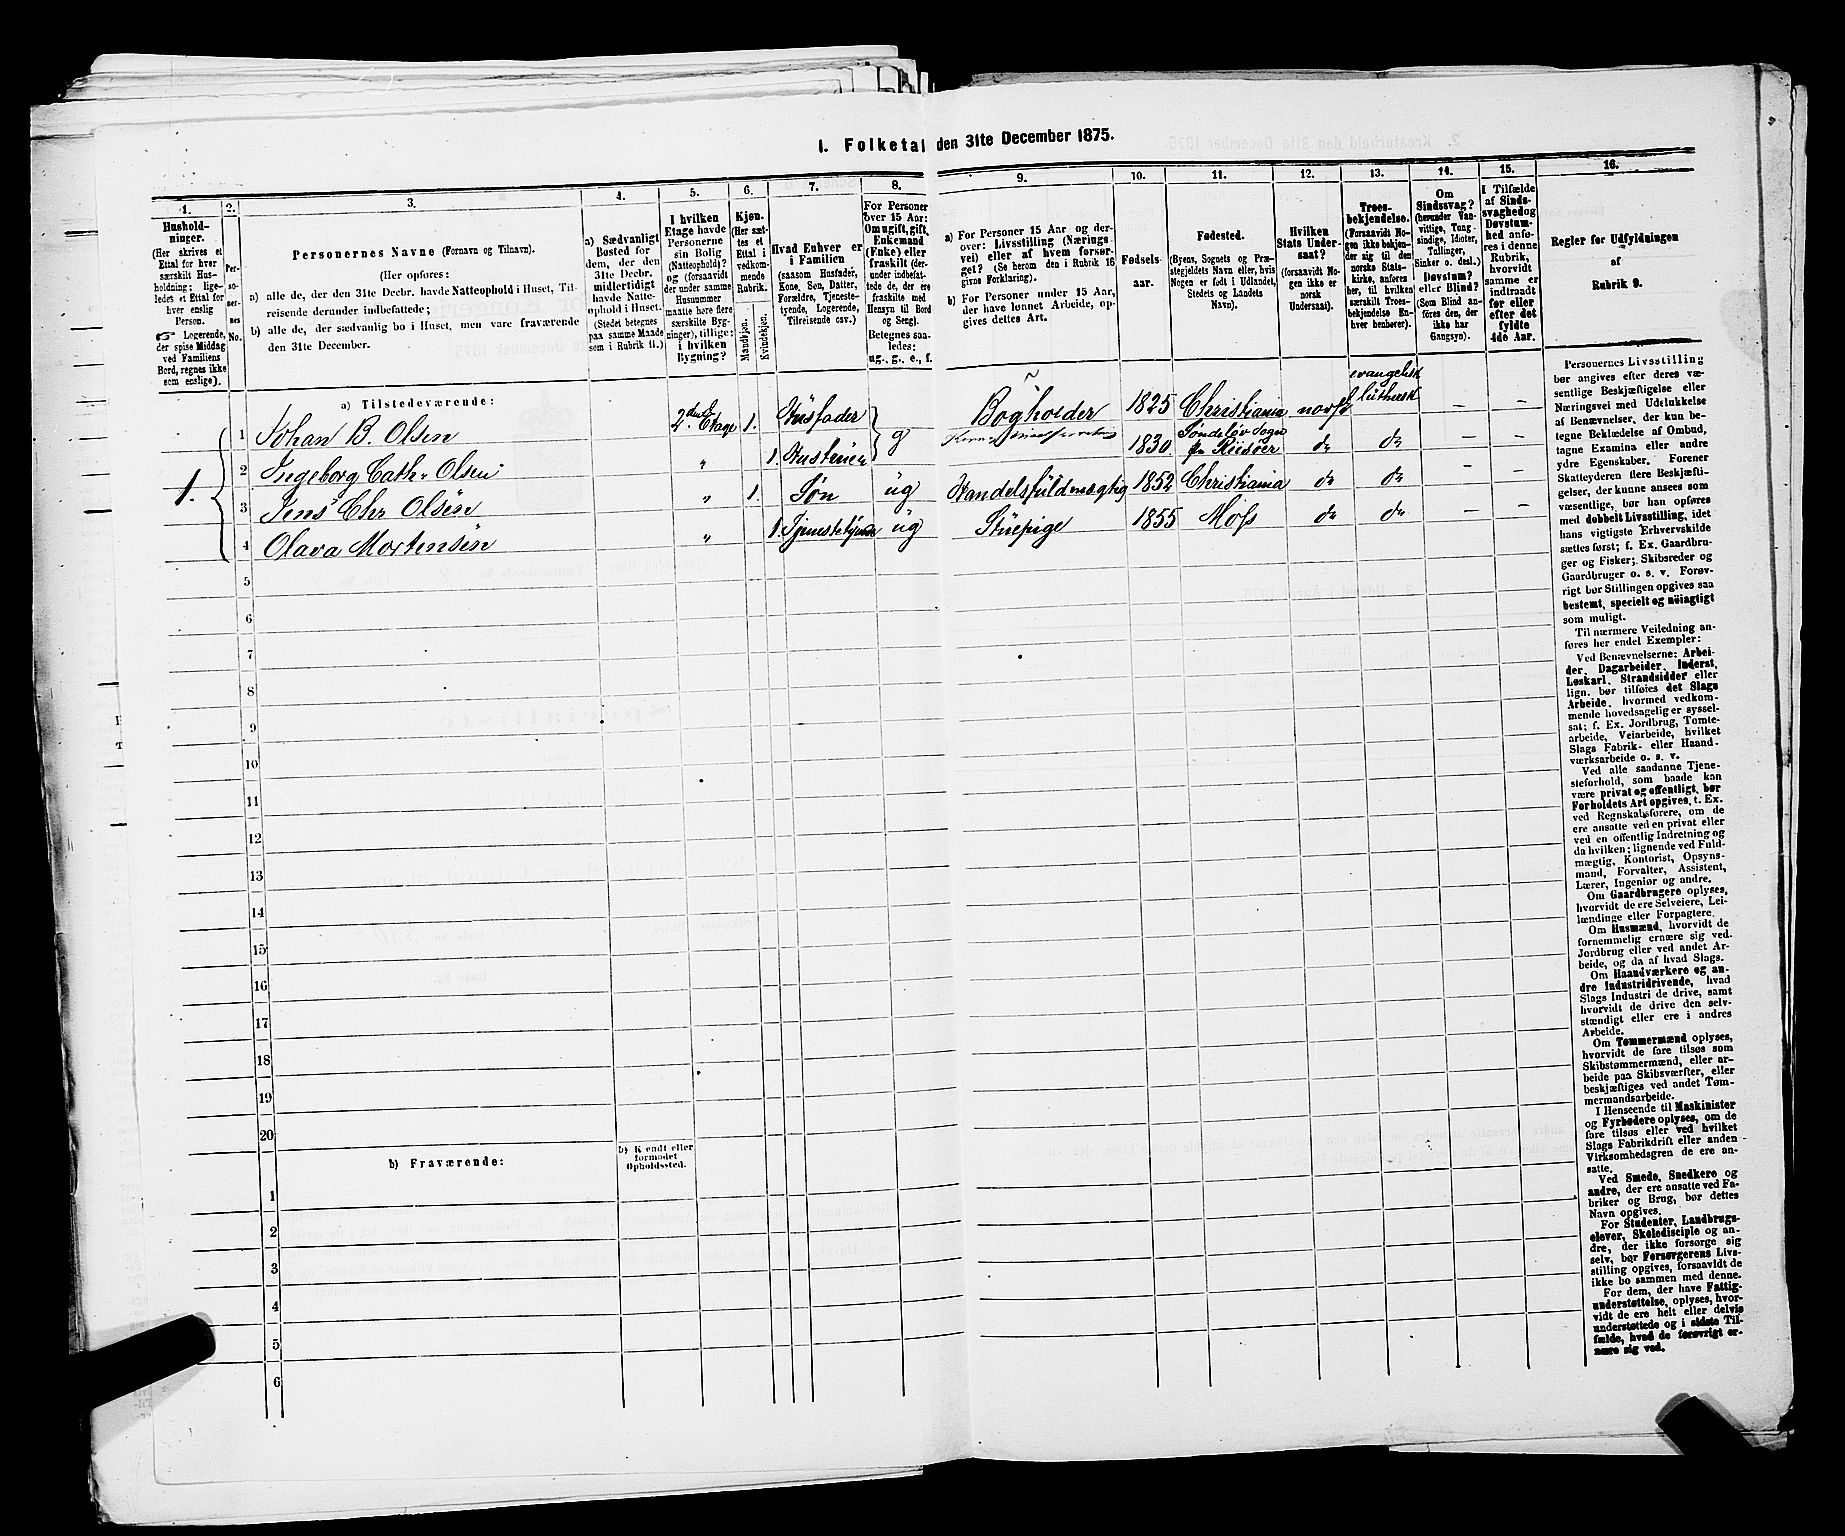 1. Folketal den 31te December 1875.
1.
Hushold-
ninger.
(Her skrives et
Ettal for hver
særskilt Hus-
holdning; lige-
ledes et Ettal for
hver enslig
Person.
☞ Logerende,
der spise Middag
ved Familiens
Bord, regnes ikke
som enslige).
2.
Per-
so-
ner-
nes
No.
3.
Personernes Navne (Fornavn og Tilnavn).
(Her opføres:
a) alle de, der den 31te Decbr. havde Natteophold i Huset, Til-
reisende derunder indbefattede;
b) alle de, der sædvanlig bo i Huset, men vare fraværende
den 31te December.
4.
a) Sædvanligt
Bosted for
dem, der den
31te Decbr.
midlertidigt
havde Natte-
ophold i Huset.
(Stedet betegnes
paa samme Maade
som i Rubrik 11.)
5.
I hvilken
Etage havde
Personerne
sin Bolig
(Natteophold)?
og (forsaavidt
der under samme
Husnummer
maatte høre flere
særskilte Byg-
ninger), tillige:
i hvilken
Bygning?
6.
Kjøn.
(Her sæt-
tes et
Ettal i
vedkom-
mende
Rubrik.
Mandkjøn.
Kvindekjøn.
7.
Hvad Enhver er
i Familien
(saasom Husfader,
Kone, Søn, Datter,
Forældre, Tjeneste-
tyende, Logerende,
Tilreisende osv.)
8.
For Personer
over 15 Aar:
Om ugift, gift,
Enkemand
(Enke) eller
fraskilt (der-
under indbefat-
tede de, der ere
fraskilte med
Hensyn til Bord
og Seng).
Betegnes saa-
ledes:
ug., g., e., f.
9.
a) For Personer 15 Aar og der-
over: Livsstilling (Nærings-
vei) eller af hvem forsør-
get? (Se herom den i Rubrik 16
givne Forklaring).
b) For Personer under 15 Aar,
der have lønnet Arbeide, op-
gives dettes Art.
10.
Fødsels-
aar.
11.
Fødested.
(Byens, Sognets og Præ-
stegjeldets Navn eller, hvis
Nogen er født i Udlandet,
Stedets og Landets
Navn).
12.
Hvilken
Stats Under-
saat?
(forsaavidt No-
gen ikke er
norsk
Undersaat).
13.
Troes-
bekjendelse.
(Forsaavidt No-
gen ikke bekjen-
der sig til den
norske Stats-
kirke, anføres
her, til hvilken
særskilt Troes-
bekjendelse En-
hver henhører).
14.
Om
Sindssvag?
(herunder Van-
vittige, Tung-
sindige, Idioter,
Tullinger,
Sinker o. desl.)
Døvstum?
eller Blind?
(Som Blind an-
føres den, der
ikke har
Gangsyn).
15.
I Tilfælde
af Sinds-
svaghed og
Døvstum-
hed anfø-
res i denne
Rubrik,
hvorvidt
samme er
indtraadt
før eller
efter det
fyldte
4de Aar.
16.
Regler for Udfyldningen
af
Rubrik 9.
a) Tilstedeværende:
1.
1 Johan B. Olsen 2den Etage 1. Husfader g Bogholder 1825 Christiania norsk evangelisk luthersk — —
2 Ingeborg Cath. Olsen „ 1. Husmoder 1830 Søndeløv Sogn pr Riisøer do do — —
3 Jens Chr Olsen „ 1. Søn ug Handelsfuldmægtig 1852 Christiania do do — —
4 Olava Mortensen „ 1. Tjenestetyende ug Stuepige 1855 Moss do do — —
5
6
7
8
9
10
11
12
13
14
15
16
17
18
19
20
b) Fraværende:
b) Kjendt eller
formodet
Opholdssted.
1
2
3
4
5
6
Personernes Livsstilling
bør angives efter deres væ-
sentlige Beskjæftigelse eller
Næringsvei med Udelukkelse
af Benævnelser, der kun be-
tegne Beklædelse af Ombud,
tagne Examina eller andre
ydre Egenskaber. Forener
Skatteyderen flere Beskjæfti-
gelser, der kunne ansees som
væsentlige, bør han opføres
med dobbelt Livsstilling, idet
hans vigtigste Erhvervskilde
sættes først; f. Ex. Gaardbru-
ger og Fisker; Skibsreder og
Gaardbruger o. s. v. Forøv-
rigt bør Stillingen opgives saa
bestemt, specielt og nøiagtigt
som muligt.
Til nærmere Veiledning an-
føres her endel Exempler:
Ved Benævnelserne: Arbei-
der, Dagarbeider, Inderst,
Løskarl, Strandsidder eller
lign. bør tilføies det Slags
Arbeide, hvormed vedkom-
mende hovedsagelig er syssel-
sat; f. Ex. Jordbrug, Tomte-
arbeide, Veiarbeide, hvilket
Slags Fabrik- eller Haand-
værksarbeide o. s. v.
Ved alle saadanne Tjene-
steforhold, som baade kan
være privat og offentligt, bør
Forholdets Art opgives, t. Ex.
ved Regnskabsførere, om de
ere ansatte ved en privat eller
ved en offentlig Indretning og
da hvilken; lignende ved Fuld-
mægtig, Kontorist, Opsyns-
mand, Forvalter, Assistent,
Lærer, Ingeniør og andre.
Om Gaardbrugere oplyses,
hvorvidt de ere Selveiere, Lei-
lændinge eller Forpagtere.
Om Husmænd, hvorvidt de
fornemmelig ernære sig ved
Jordbrug eller ved andet Ar-
beide, og da af hvad Slags.
Om Haandværkere og an-
dre Industridrivende, hvad
Slags Industri de drive, samt
hvorvidt de drive den selv-
stændigt eller ere i andres
Arbeide.
Om Tømmermænd oplyses,
hvorvidt de fare tilsøs som
Skibstømmermænd, eller ar-
beide paa Skibsværfter, eller
beskjæftiges ved andet Tøm-
mermandsarbeide.
I Henseende til Maskinister
og Fyrbødere oplyses, om de
fare tilsøs eller ved hvilket
Slags Fabrikdrift eller anden
Virksomhedsgren de ere an-
satte.
Ved Smede, Snedkere og
andre, der ere ansatte ved Fa-
briker og Brug, bør dettes
Navn opgives.
For Studenter, Landbrugs-
elever, Skoledisciple og an-
dre, der ikke forsørge sig
selv, bør Forsørgerens Livs-
stilling opgives, forsaavidt de
ikke bo sammen med denne.
For dem, der have Fattig-
understøttelse, oplyses, hvor-
vidt de ere helt eller delvis
understøttede og i sidste Til-
fælde, hvad de forøvrigt er-
nære sig ved.